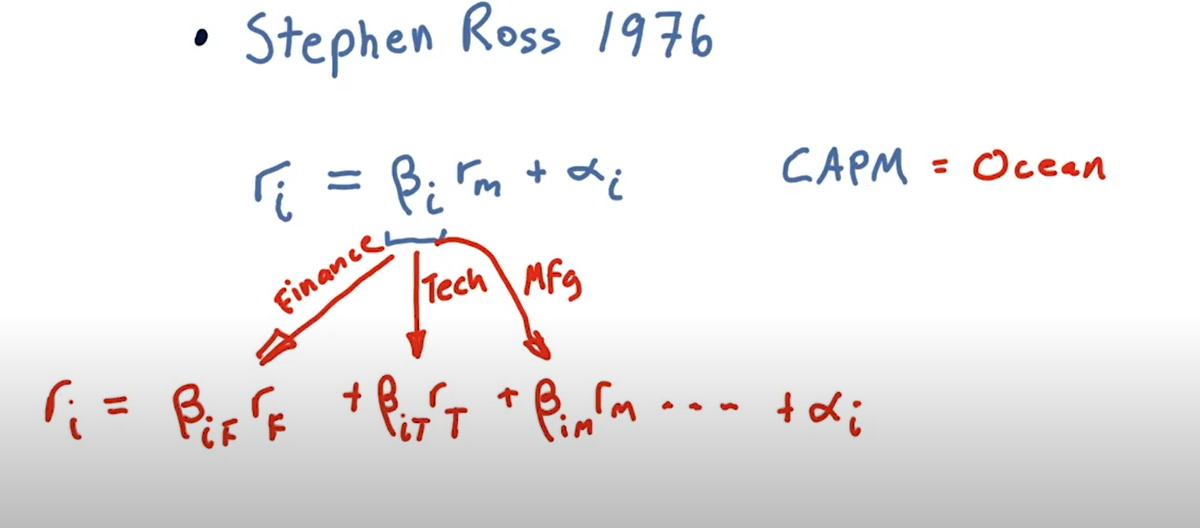 • Stephen Ross 1976
rᵢ = βᵢ rₘ + αᵢ
CAPM = Ocean
Finance
Tech
Mfg
rᵢ = β_iF r_F + β_iT r_T + β_iM r_M ---- + αᵢ